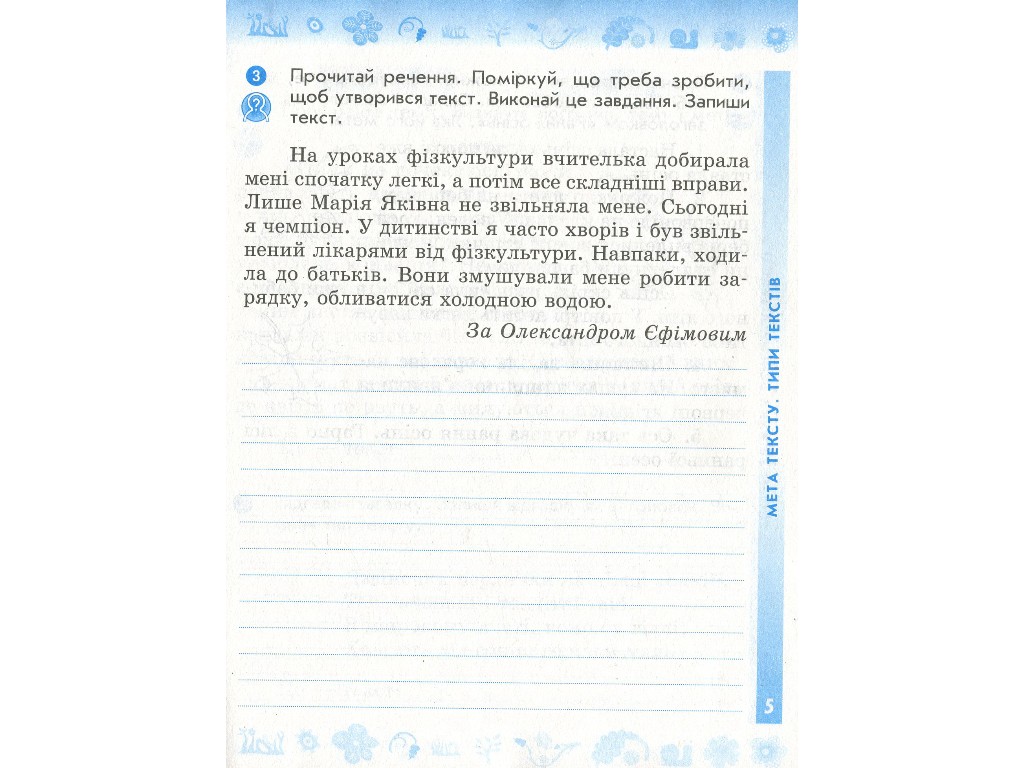 3 Прочитай речення. Поміркуй, що треба зробити,
щоб утворився текст. Виконай це завдання. Запиши
текст.
На уроках фізкультури вчителька добирала
мені спочатку легкі, а потім все складніші вправи.
Лише Марія Яківна не звільняла мене. Сьогодні
я чемпіон. У дитинстві я часто хворів і був звіль-
нений лікарями від фізкультури. Навпаки, ходи-
ла до батьків. Вони змушували мене робити за-
рядку, обливатися холодною водою.
За Олександром Єфімовим
МЕТА ТЕКСТУ. ТИПИ ТЕКСТІВ
5